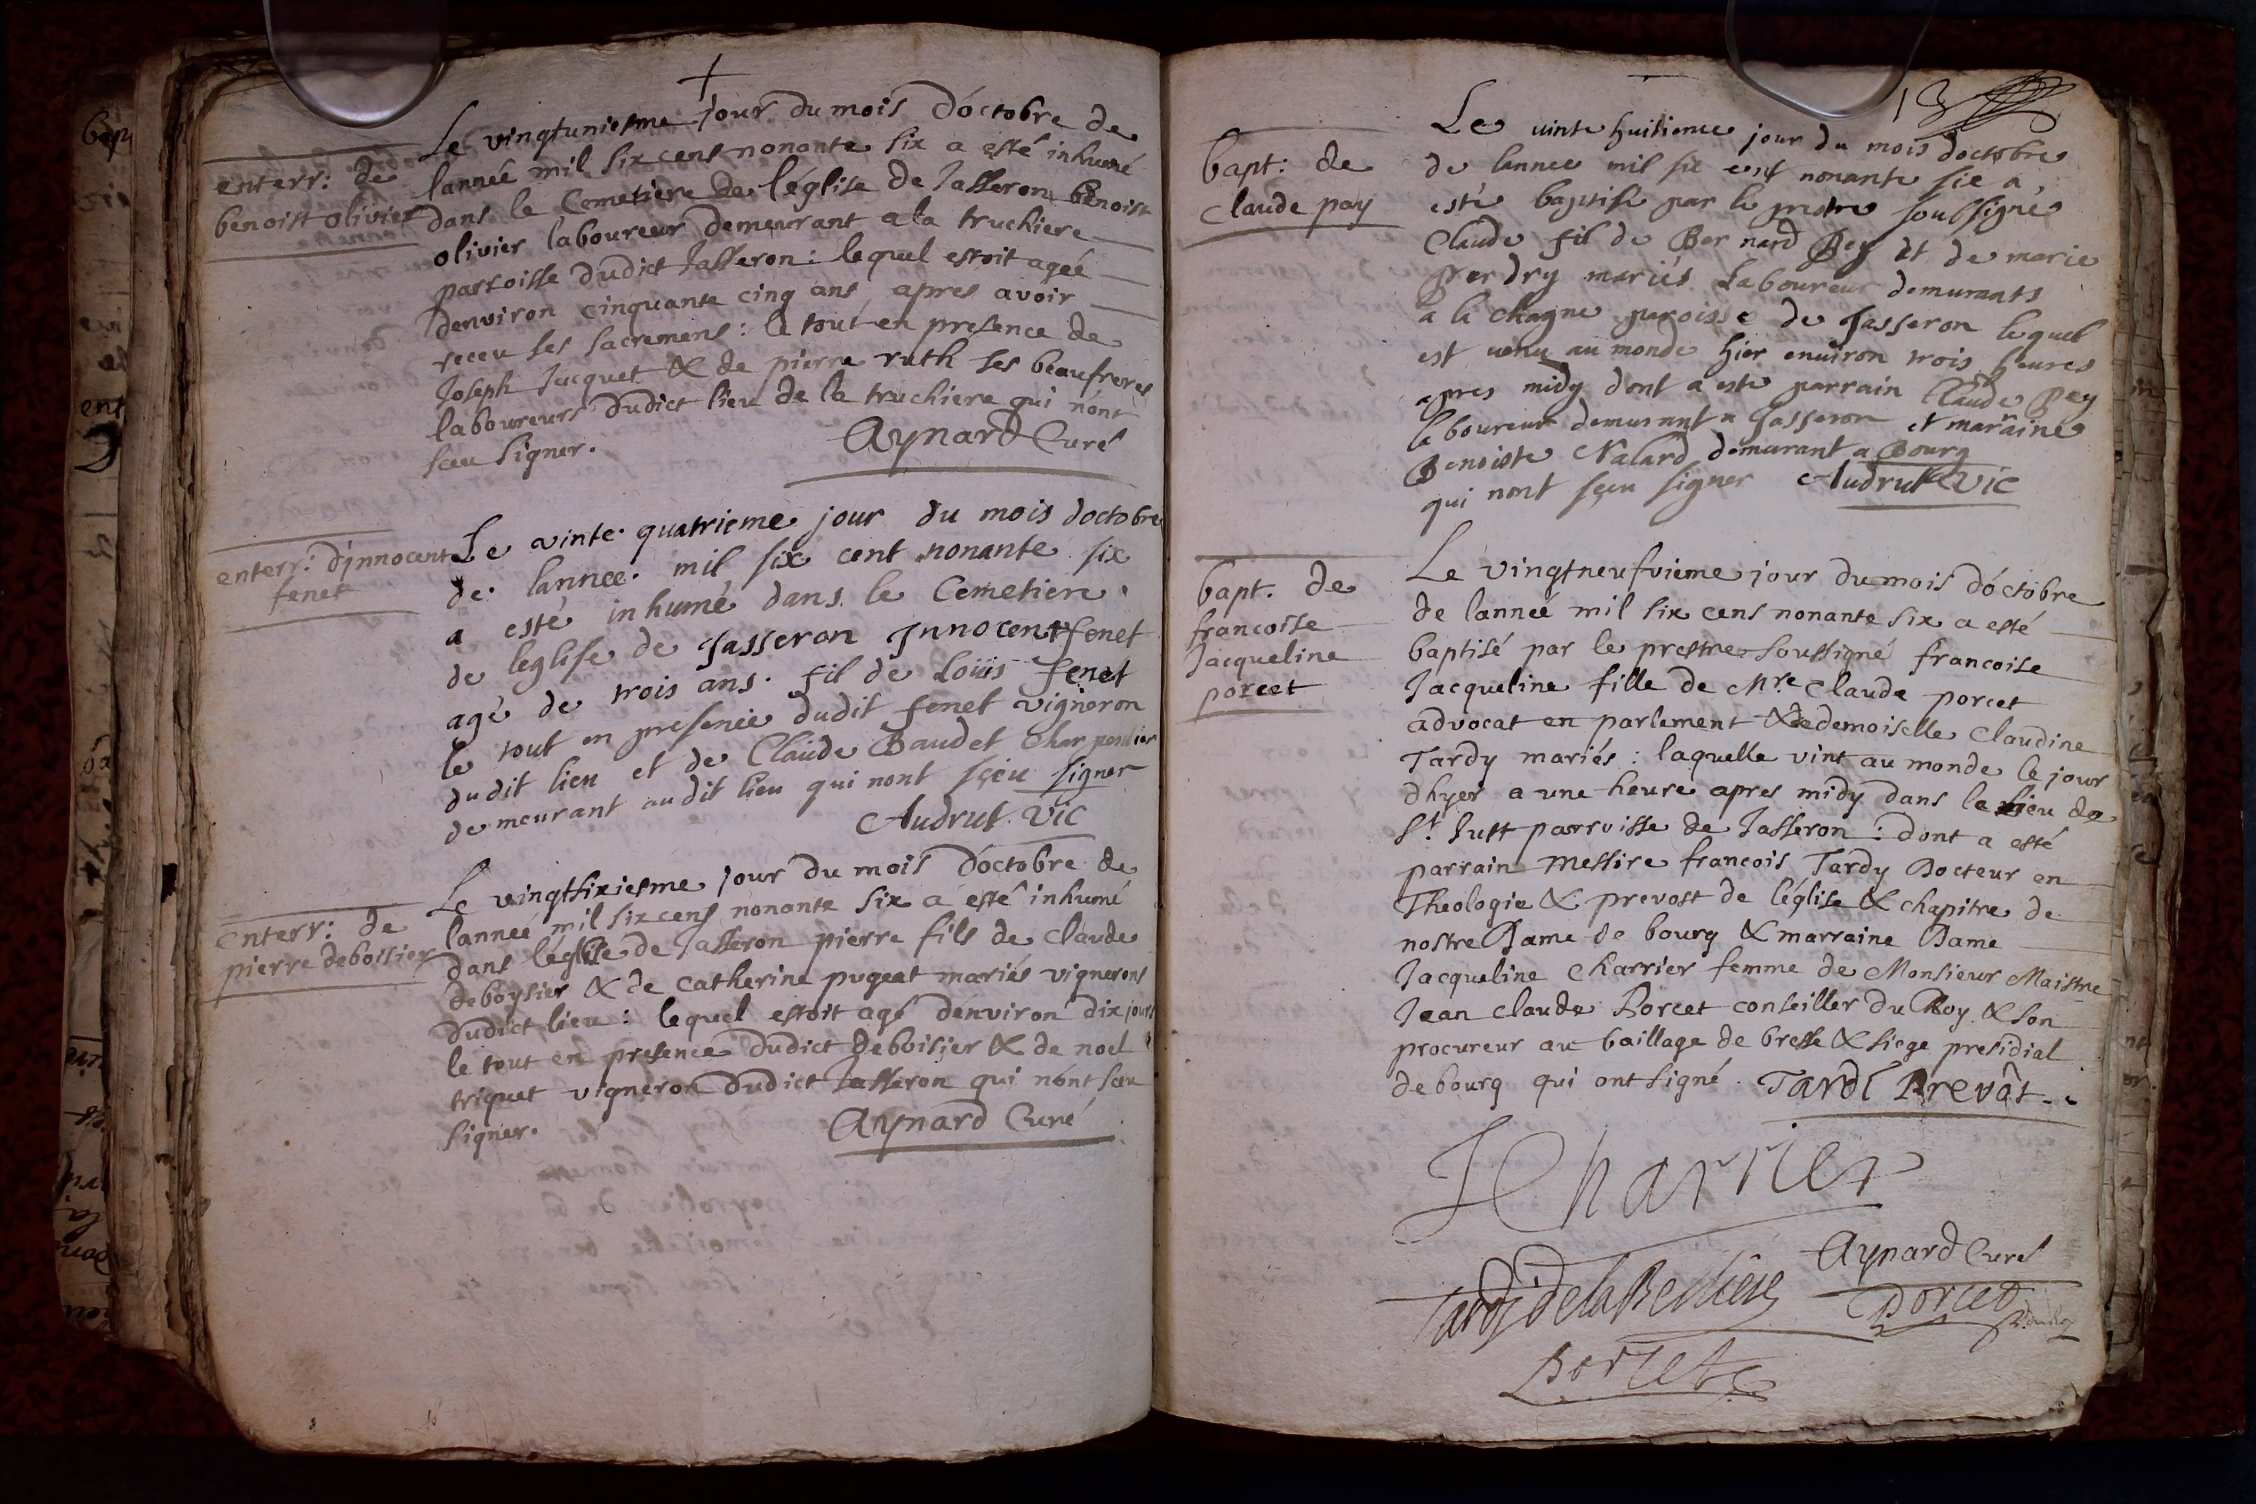 Le vingtuniesme jour du mois d'octobre de
enterr: de
benoist olivier
lanneé mil six cens nonante six a esté inhumé
dans le Cemetiere de l'église de Jasseron benoist
olivier laboureur demeurant a la truchiere
parroisse dudict Jasseron: lequel estoit ageé
denviron cinquante cinq ans, apres avoir
receu ses sacremens: le tout en presence de
Joseph Jacquet & de pierre ruth ses beaufreres
laboureurs dudict lieu de la truchiere qui n'ont
sceu signer.
Aynard Curé
enterr: d'Jnnocent
fenet
Le vinte quatrieme jour du mois doctobre
de lannee mil six cent nonante six
a esté inhumé dans le Cemetiere
de leglise de Jasseron Jnnocent fenet
agé de trois ans. fil de Loüis fenet
le tout en presence dudit fenet vigneron
dudit lieu et de Claude Baudet Charpentier
demeurant audit lieu qui nont sçeu signer
Audrut Vic
enterr: de
pierre deboissier
Le vingtsixiesme jour du mois d'octobre de
lanneé mil six cens nonante six a esté inhumé
dans l'église de Jasseron pierre fils de claude
deboysier & de catherine pugeat mariés vignerons
dudict lieu: lequel estoit agé d'environ dix jours
le tout en presence dudict deboisier & de noel
triquet vigneron dudict Jasseron qui n'ont sceu
signer.
Aynard Curé
13
bapt: de
claude pay
Le uinte huitieme jour du mois doctobre
de lannee mil six cent nonante sie a
esté baptisé par le prestre soubsigné
Claude fil de Bernard Pey et de marie
Perdry mariés Laboureur demurants
a la chagne paroisse de Jasseron lequel
est uenu au monde hier enuiron trois heures
apres midy dont a esté parrain Claude Pey
laboureur demurant a Jasseron et marraine
Benoiste Nalard demurant a Bourg
qui nont sçeu signer Audrut Vic
bapt. de
francoise
Jacqueline
porcet
Le vingtneufvieme jour du mois d'octobre
de lanneé mil six cens nonante six a esté
baptisé par le prestre soussigné francoise
Jacqueline fille de Mre Claude porcet
advocat en parlement & de demoiselle Claudine
Tardy mariés: laquelle vint au monde le jour
dhyer a une heure apres midy dans le lieu de
St Just parroisse de Jasseron: dont a esté
parrain Messire francois Tardy Docteur en
Theologie & prevost de l'église & chapitre de
nostre Dame de bourg & marraine Dame
Jacqueline Charrier femme de Monsieur Maistre
Jean Claude Borcet conseiller du Roy & son
procureur au baillage de bresse & siege presidial
de bourg qui ont signé. Tardi Prevôt.
J Charrier
Aynard Curé
Tardy de la
Borcet
Borcet